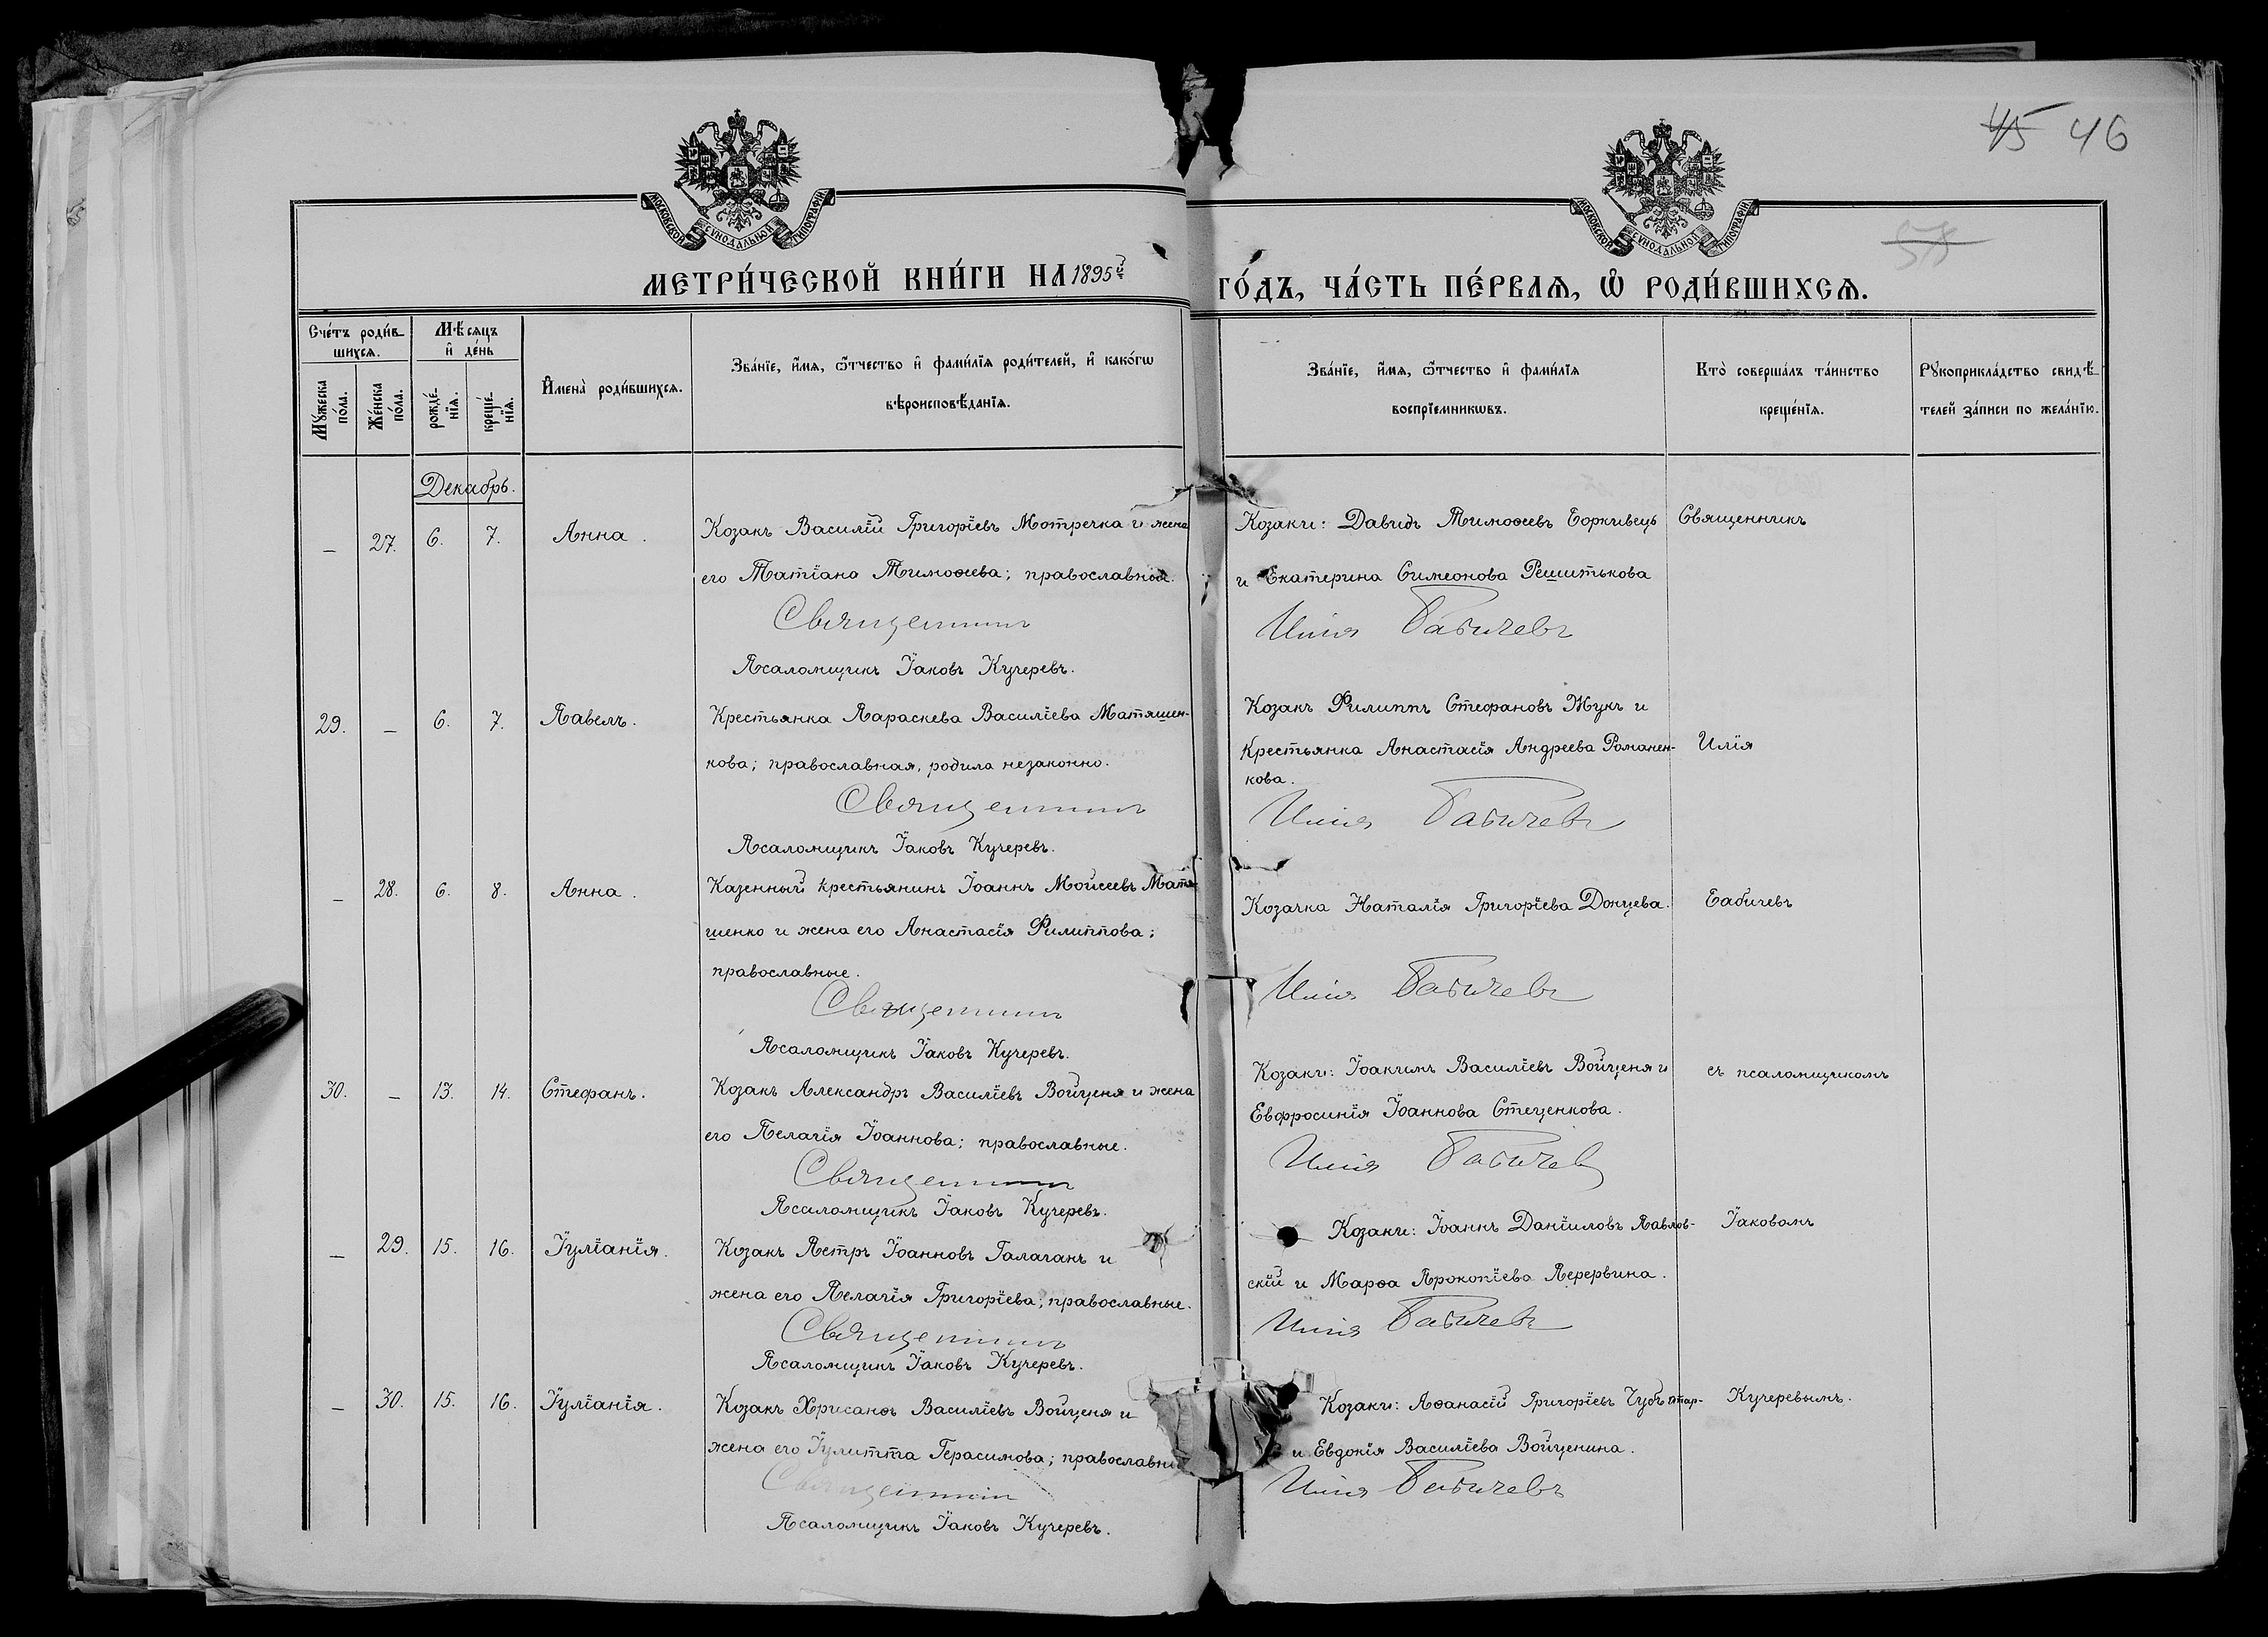 45 46
МОСКОВСКОЙ СѴНОДАЛЬНОЙ ТИПОГРАФІИ
МОСКОВСКОЙ СѴНОДАЛЬНОЙ ТИПОГРАФІИ
МЕТРИ́ЧЕСКОЙ КНИ́ГИ НА 1895й ГО́ДЪ, ЧА́СТЬ ПЕ́РВАЯ, Ѡ҆ РОДИ́ВШИХСЯ.
Сче́тъ роди́в-
шихся.
Мꙋ́жеска
по́ла.
Же́нска
по́ла.
Мѣ́сяцъ
и҆ де́нь
рожде́-
нїѧ.
креще́-
нїѧ.
И҆мена̀ роди́вшихсѧ.
Зва́нїе, и҆́мѧ, ѻ҆́тчество и҆ фами́лїѧ роди́телей, и҆ како́гѡ
вѣроисповѣ́данїѧ.
Зва́нїе, и҆́мѧ, ѻ҆́тчество и҆ фами́лїѧ
воспрїе́мникѡвъ.
Кто̀ соверша́лъ та́инство
креще́нїѧ.
Рꙋкоприкла́дство свидѣ́-
телей за́писи по жела́нїю.
Декабрь.
— 27. 6. 7. Анна.
Козакъ Василій Григоріевъ Мотречка и жена
его Татіана Тимоѳеева; православные.
Священникъ
Псаломщикъ Іаковъ Кучеревъ.
Козаки: Давидъ Тимоѳеевъ Боркивецъ
и Екатерина Симеонова Решитькова
Илія Бабичевъ
Священникъ
29. — 6. 7. Павелъ.
Крестьянка Параскева Василіева Матяшен-
кова; православная, родила незаконно.
Священникъ
Псаломщикъ Іаковъ Кучеревъ.
Козакъ Филиппъ Стефановъ Жукъ и
Крестьянка Анастасія Андреева Романен-
кова.
Илія Бабичевъ
Илія
— 28. 6. 8. Анна.
Казенный крестьянинъ Іоаннъ Моисеевъ Матя-
шенко и жена его Анастасія Филиппова;
православные.
Священникъ
Псаломщикъ Іаковъ Кучеревъ.
Козачка Наталія Григоріева Донцева.
Илія Бабичевъ
Бабичевъ
30. — 13. 14. Стефанъ.
Козакъ Александръ Василіевъ Войценя и жена
его Пелагія Іоаннова; православные.
Священникъ
Псаломщикъ Іаковъ Кучеревъ.
Козаки: Іоакимъ Василіевъ Войценя и
Евфросинія Іоаннова Стеценкова.
Илія Бабичевъ
съ псаломщикомъ
— 29. 15. 16. Іуліанія.
Козакъ Петръ Іоанновъ Галаганъ и
жена его Пелагія Григоріева; православные.
Священникъ
Псаломщикъ Іаковъ Кучеревъ.
Козаки: Іоаннъ Даніиловъ Павлов-
скій и Марѳа Прокопіева Перервина.
Илія Бабичевъ
Іаковомъ
— 30. 15. 16. Іуліанія.
Козакъ Хрисанѳъ Василіевъ Войценя и
жена его Іулитта Герасимова; православны
Священникъ
Псаломщикъ Іаковъ Кучеревъ.
Козаки: Аѳанасій Григоріевъ Чубъ
и Евдокія Василіева Войценина.
Илія Бабичевъ
Кучеревымъ.